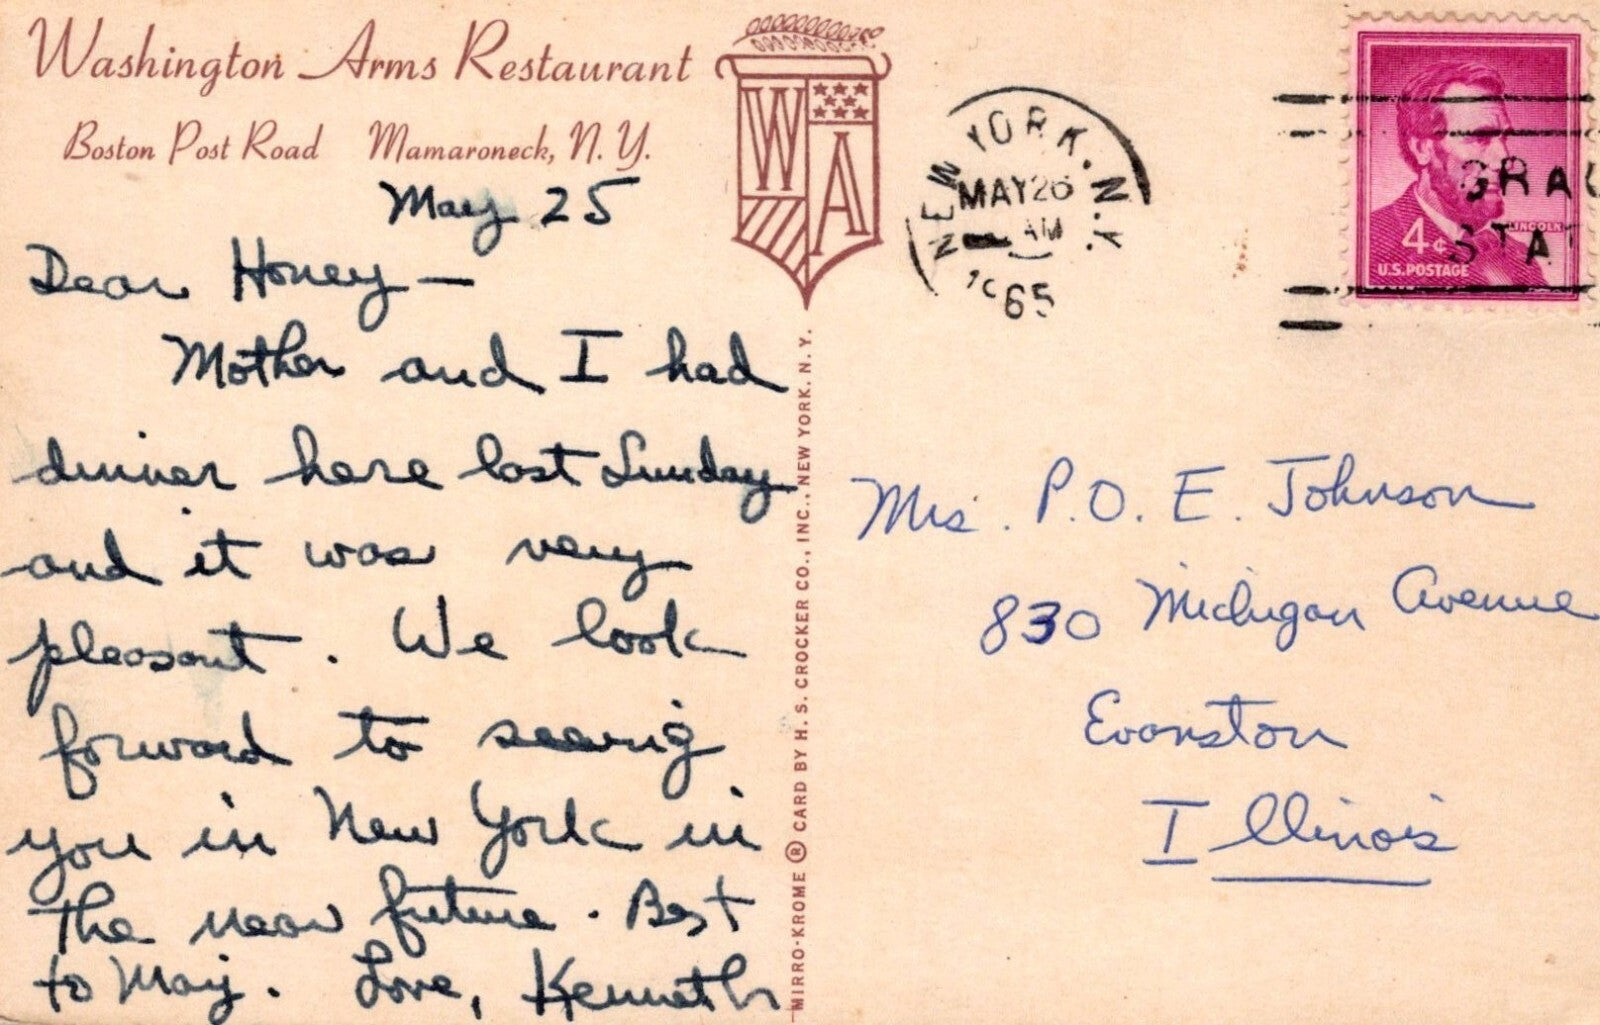 Washington Arms Restaurant
Boston Post Road Mamaroneck, N. Y.
W A
May 25
Dear Honey —
Mother and I had
dinner here last Sunday
and it was very
pleasant. We look
forward to seeing
you in New York in
the near future. Best
to May. Love, Kenneth
MIRRO-KROME ® CARD BY H. S. CROCKER CO., INC., NEW YORK, N. Y.
NEW YORK, N.Y.
MAY 26
AM
1965
LINCOLN
4¢
U.S. POSTAGE
Mrs. P. O. E. Johnson
830 Michigan Avenue
Evanston
Illinois